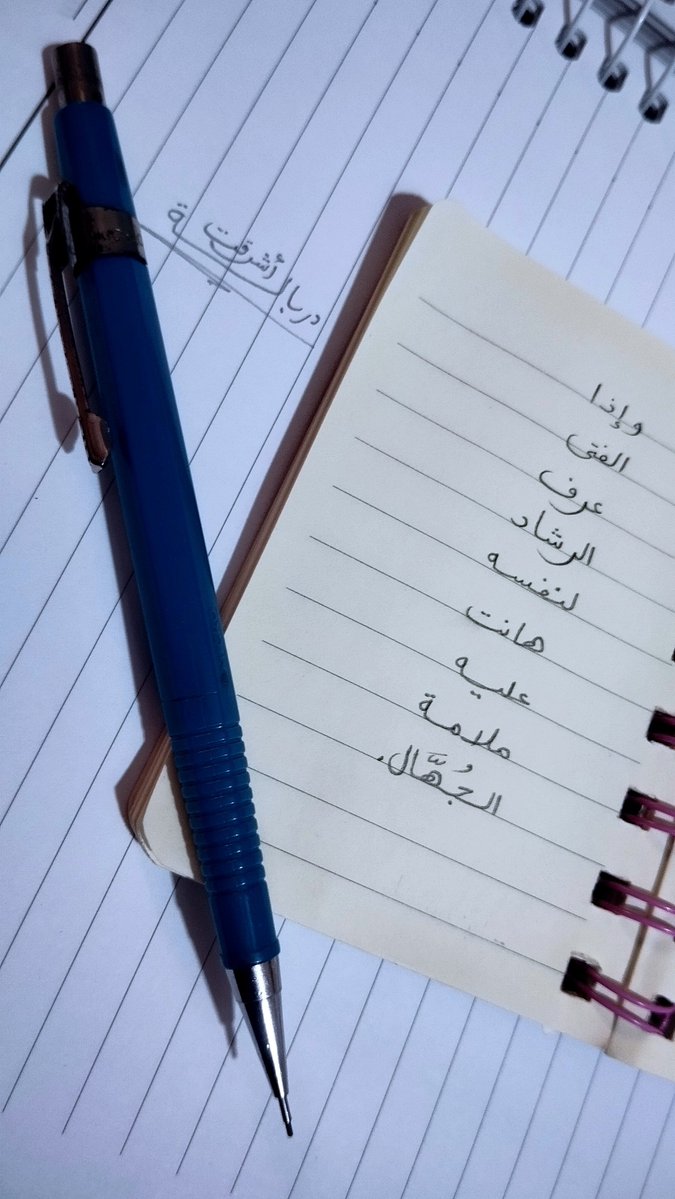 وإذا
الفتى
عرف
الرشاد
لنفسه
هانت
عليه
ملامة
الجُهَّال.
أشرقت